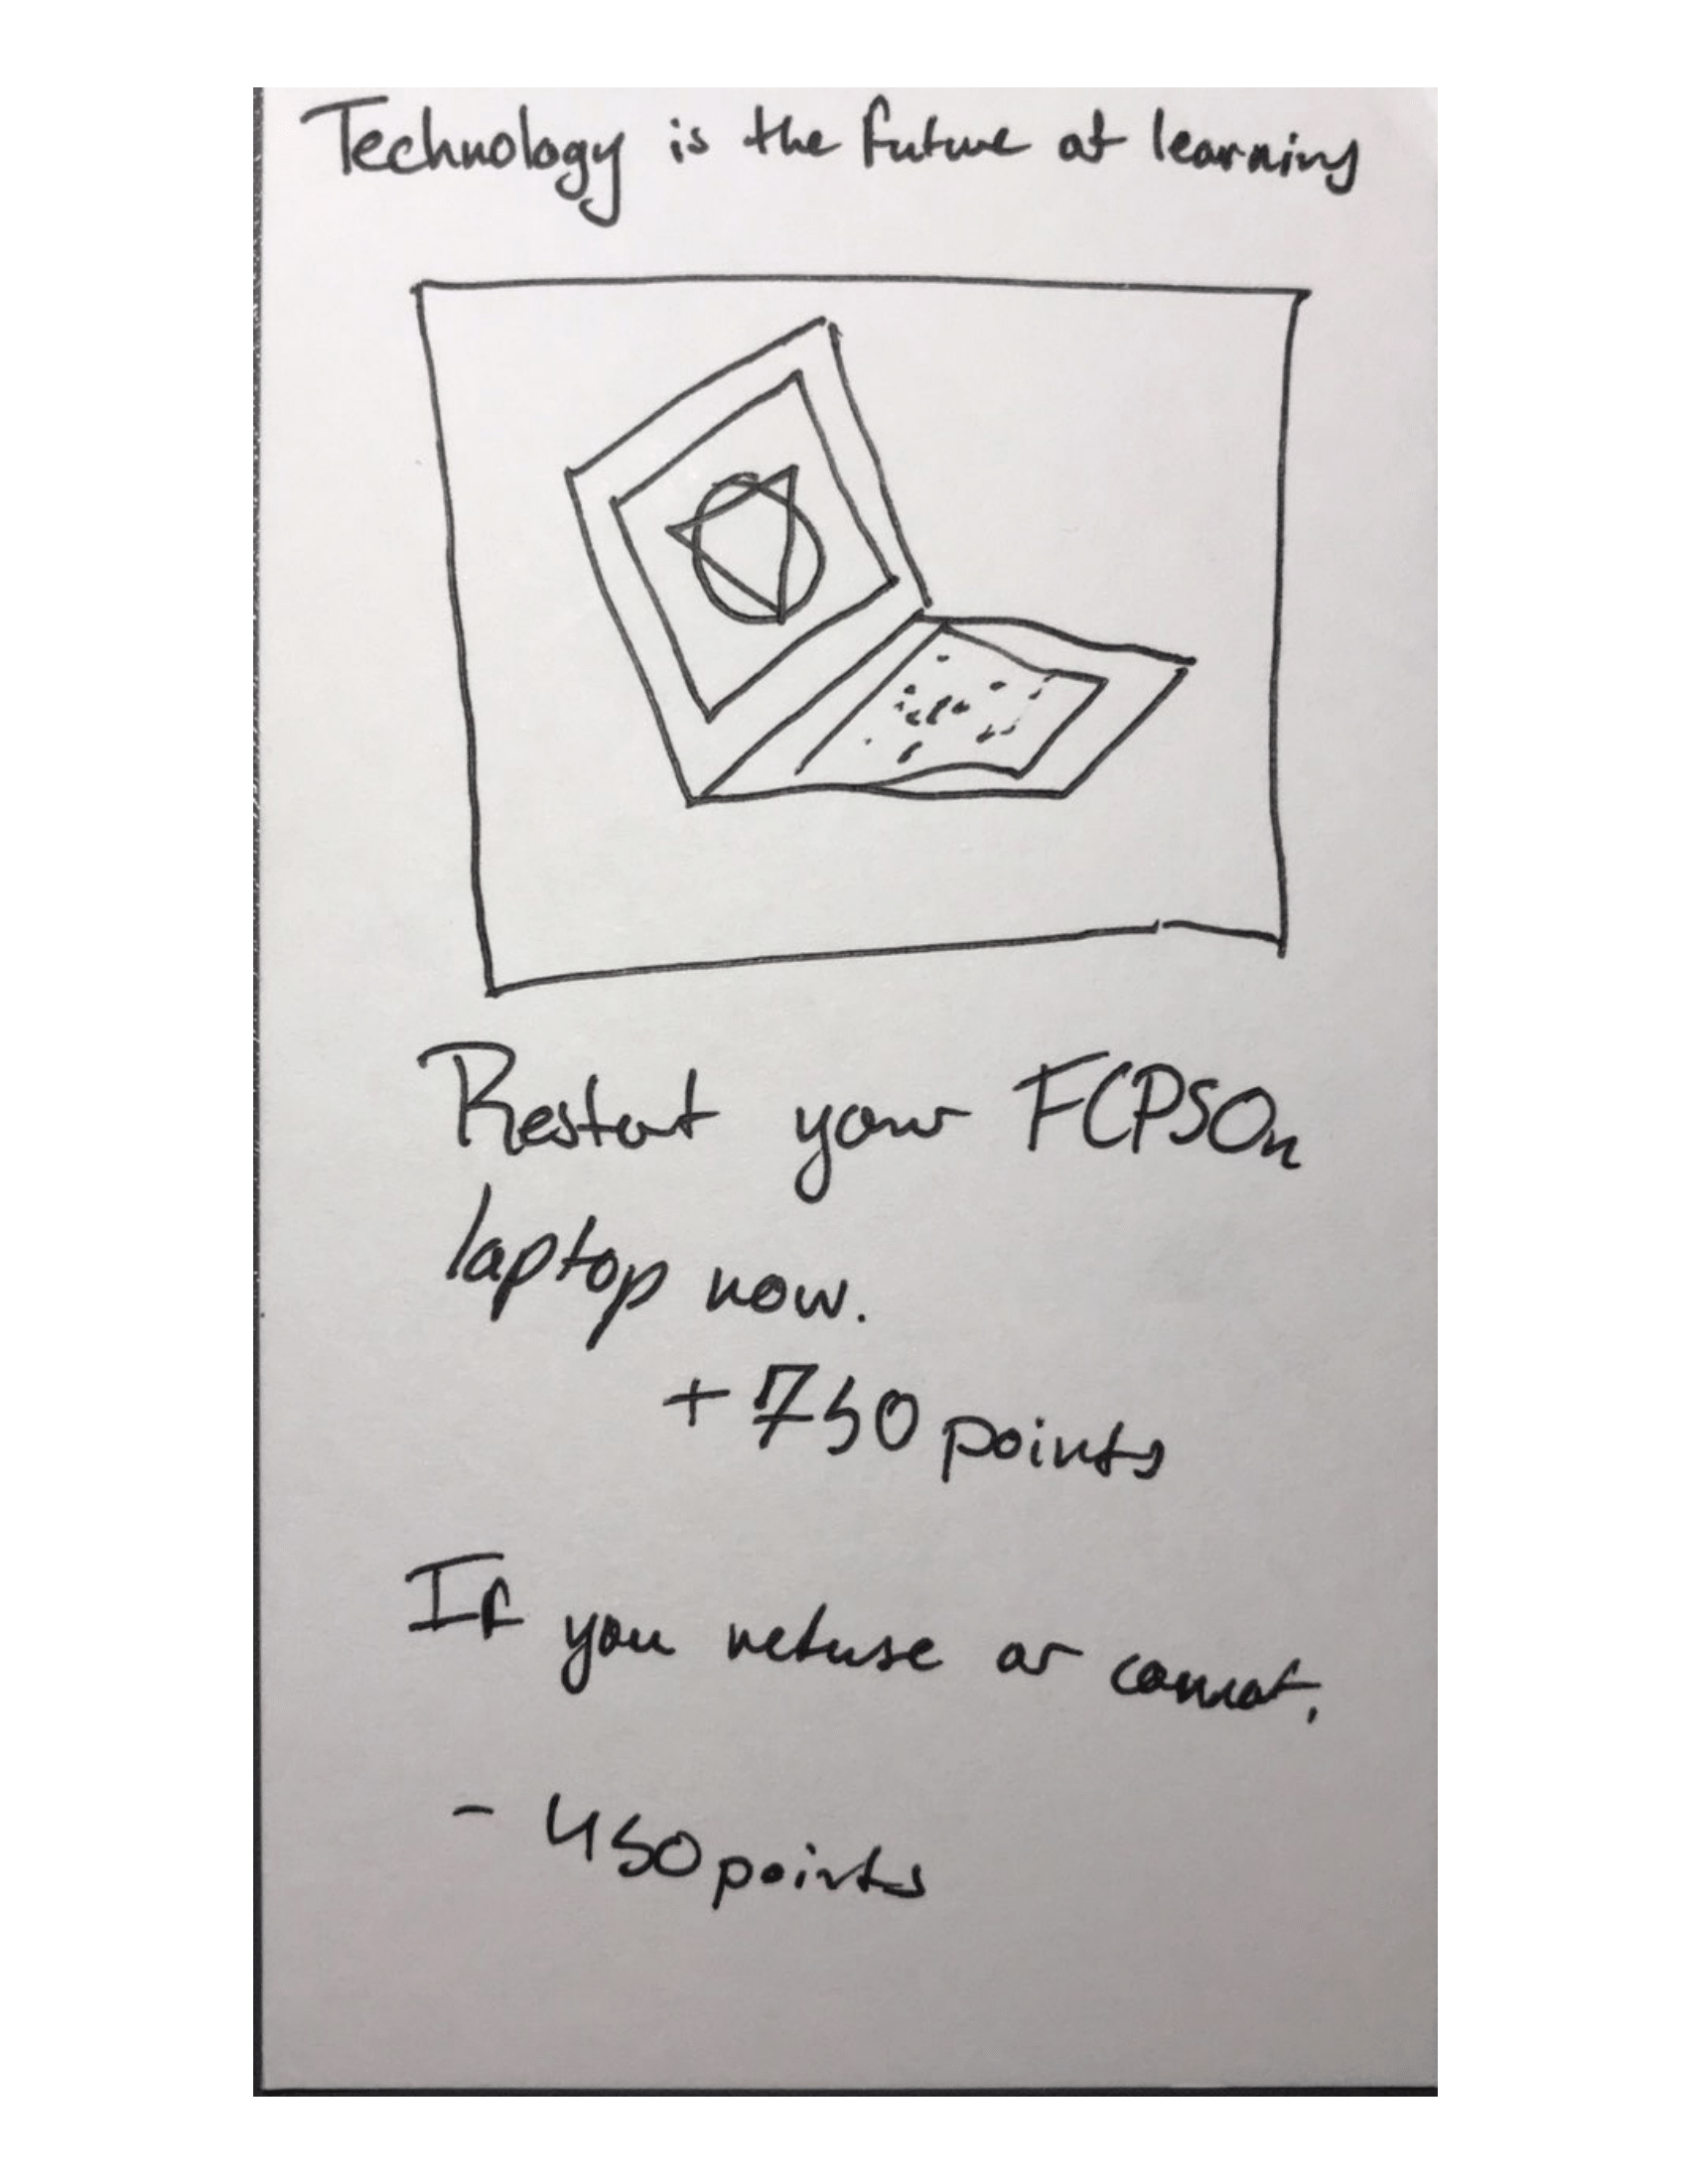 Technology is the future of learning
Restart your FCPSOn
laptop now.
+750 points
If you refuse or cannot,
- 450 points